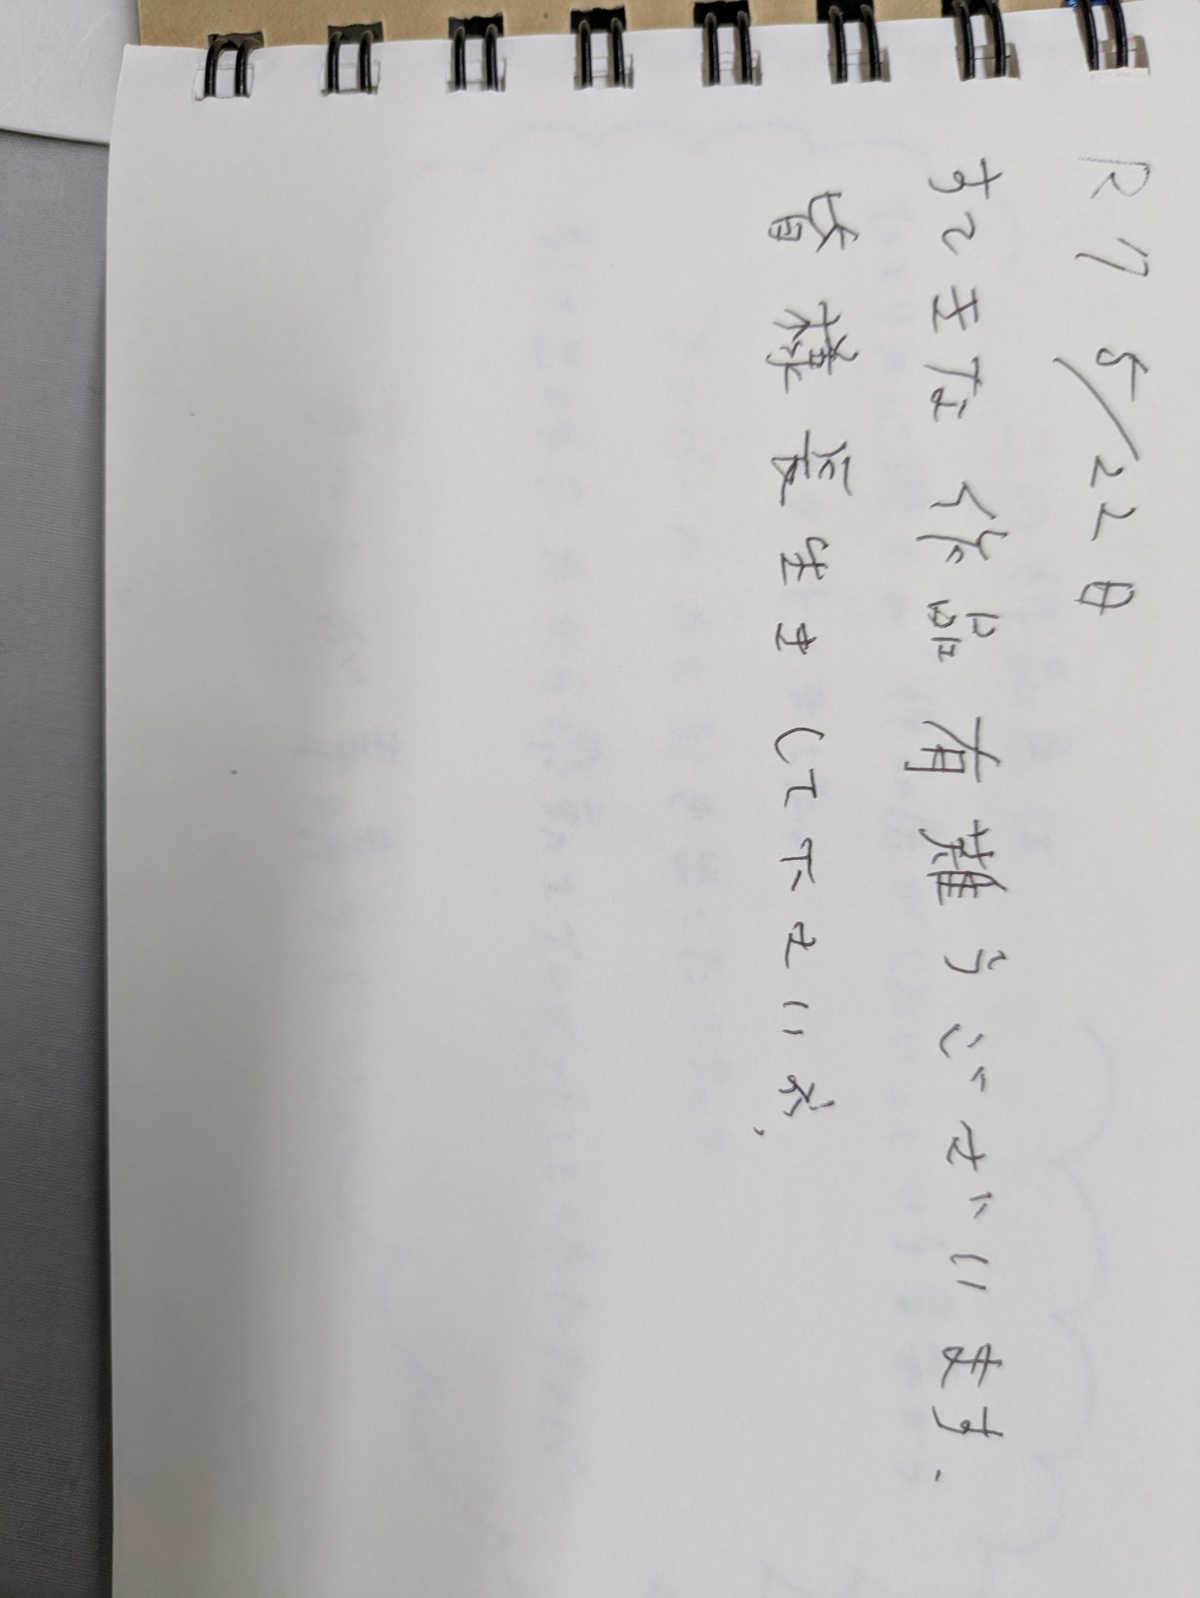 R7 5/22日
すてきな作品有難うございます.
皆様長生きして下さいネ、